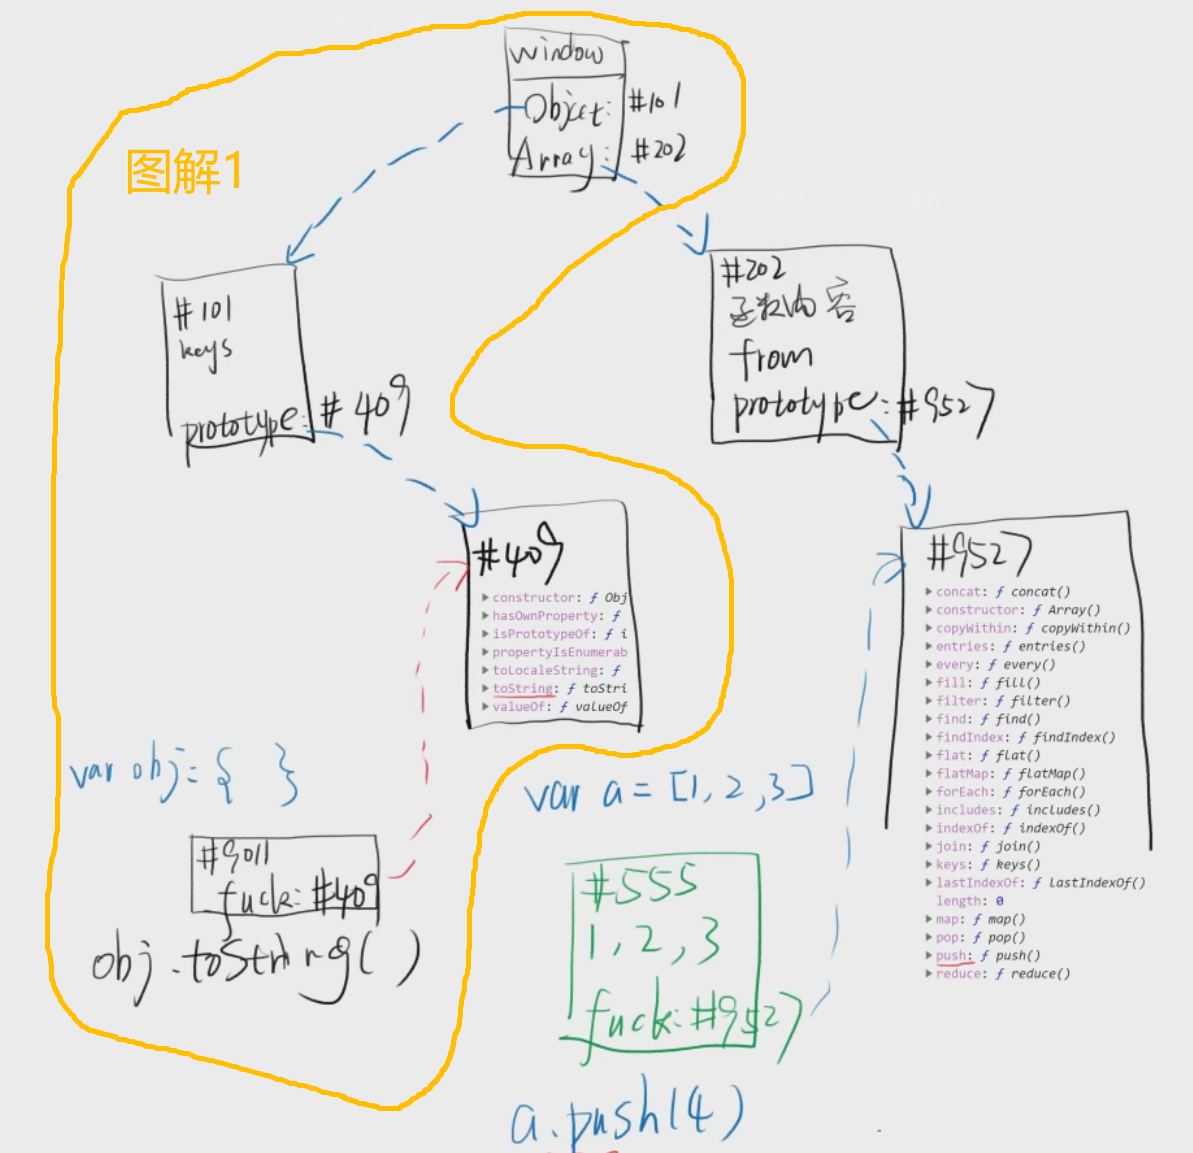 window
Object: #101
Array: #202
图解1
#101
keys
prototype: #409
#202
函数内容
from
prototype: #9527
#409
constructor: ƒ Obj
hasOwnProperty: ƒ
isPrototypeOf: ƒ i
propertyIsEnumerab
toLocaleString: ƒ
toString: ƒ toStri
valueOf: ƒ valueOf
#9527
concat: ƒ concat()
constructor: ƒ Array()
copyWithin: ƒ copyWithin()
entries: ƒ entries()
every: ƒ every()
fill: ƒ fill()
filter: ƒ filter()
find: ƒ find()
findIndex: ƒ findIndex()
flat: ƒ flat()
flatMap: ƒ flatMap()
forEach: ƒ forEach()
includes: ƒ includes()
indexOf: ƒ indexOf()
join: ƒ join()
keys: ƒ keys()
lastIndexOf: ƒ lastIndexOf()
length: 0
map: ƒ map()
pop: ƒ pop()
push: ƒ push()
reduce: ƒ reduce()
var obj = { }
#9011
fuck: #409
obj.toString()
var a = [1, 2, 3]
#555
1, 2, 3
fuck: #9527
a.push(4)